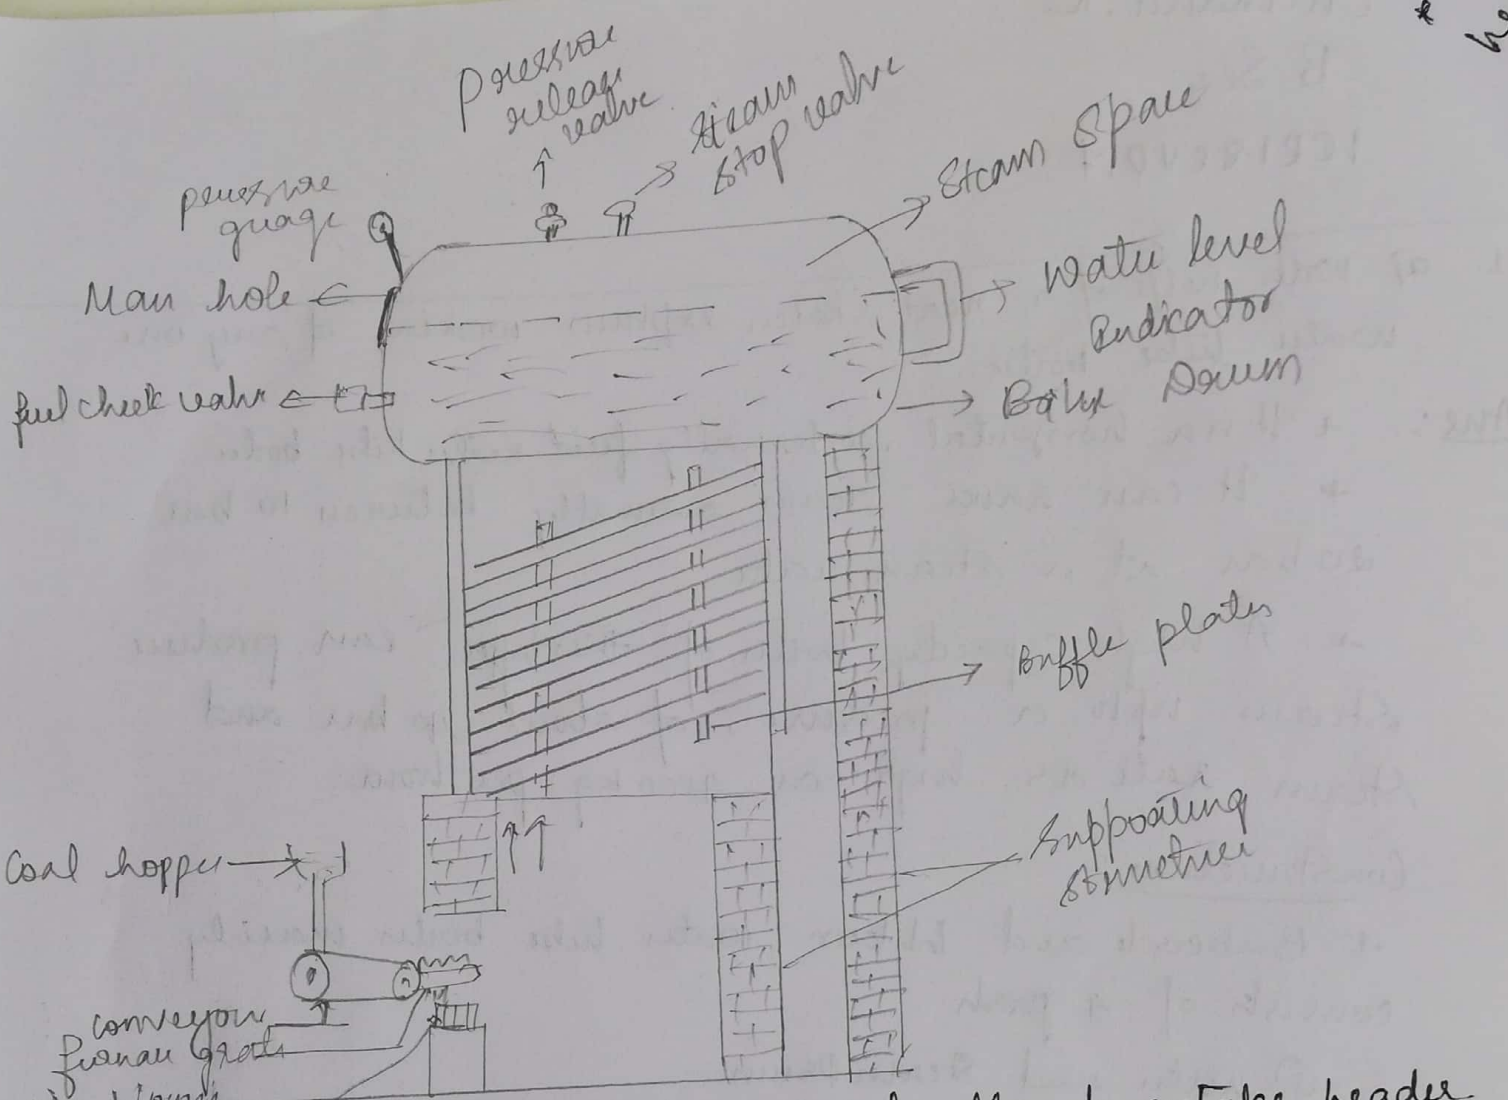 Pressure
release
valve
Steam
stop valve
Steam Space
pressure
guage
Man hole
Water level
Indicator
fuel check valve
Boiler Drum
Buffle plates
Coal hopper
Supporting
structure
conveyor
furnau grate
Tube header